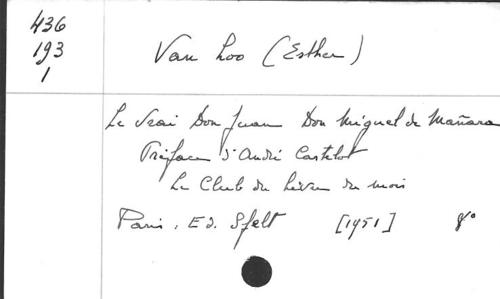 436
193
1
Van Loo (Esther)
Le Vrai Don Juan Don Miguel de Mañara
Préface d'André Castelot
Le Club du Livre du mois
Paris. Ed. Sfelt [1951] 8°